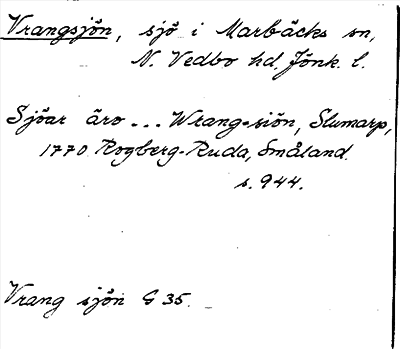 Vrangsjön, sjö i Marbäcks sn,
N. Vedbo hd. Jönk. l.
Sjöar äro ... Wrang-siön, Slumarp,
1770 Rogberg-Ruda, Småland.
s. 944.
Vrang sjön G 35.